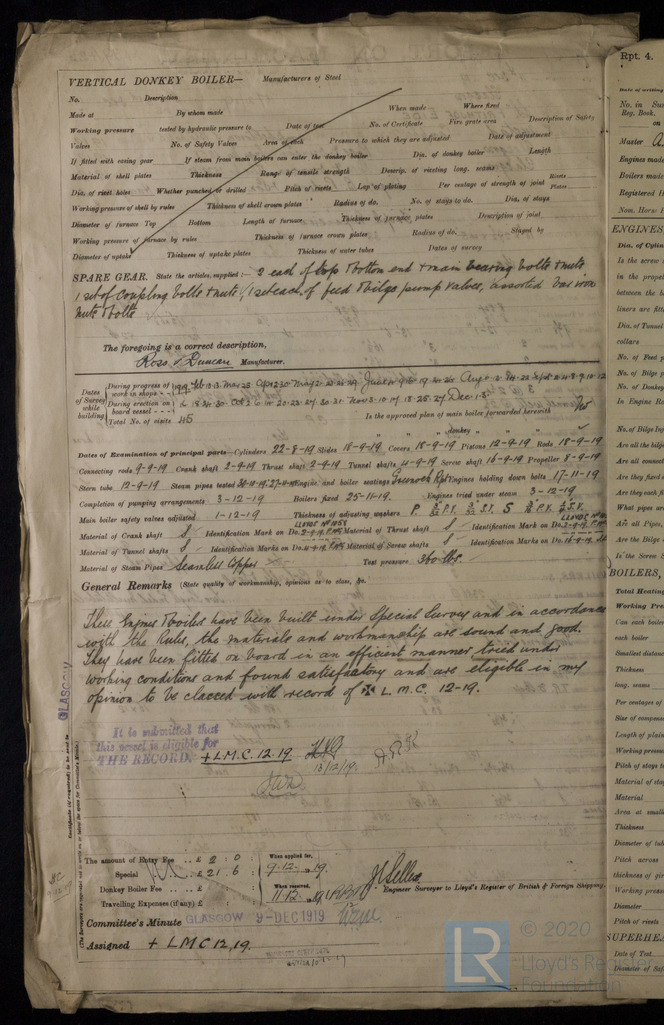 VERTICAL DONKEY BOILER— Manufacturers of Steel
No. Description
Made at By whom made When made Where fixed
Working pressure tested by hydraulic pressure to Date of test No. of Certificate Fire grate area Description of Safety
Valves No. of Safety Valves Area of each Pressure to which they are adjusted Date of adjustment
If fitted with easing gear If steam from main boilers can enter the donkey boiler Dia. of donkey boiler Length
Material of shell plates Thickness Range of tensile strength Descrip. of riveting long. seams
Dia. of rivet holes Whether punched or drilled Pitch of rivets Lap of plating Per centage of strength of joint Rivets Plates
Working pressure of shell by rules Thickness of shell crown plates Radius of do. No. of stays to do. Dia. of stays
Diameter of furnace Top Bottom Length of furnace Thickness of furnace plates Description of joint
Working pressure of furnace by rules Thickness of furnace crown plates Radius of do. Stayed by
Diameter of uptake Thickness of uptake plates Thickness of water tubes Dates of survey
SPARE GEAR. State the articles supplied:— 2 each of top & bottom end & main bearing bolts & nuts
1 set of coupling bolts & nuts, 1 set each of feed & bilge pump valves, assorted bar iron
nuts & bolts
The foregoing is a correct description,
Ross & Duncan Manufacturer.
Dates of Survey while building
During progress of work in shops - -
During erection on board vessel - - -
Total No. of visits 45 Is the approved plan of main boiler forwarded herewith No
" " " donkey " " "
Dates of Examination of principal parts—Cylinders 22-8-19 Slides 18-9-19 Covers 18-9-19 Pistons 12-9-19 Rods 18-9-19
Connecting rods 9-9-19 Crank shaft 2-9-19 Thrust shaft 2-9-19 Tunnel shafts 4-9-19 Screw shaft 16-9-19 Propeller 8-9-19
Stern tube 12-9-19 Steam pipes tested Engine and boiler seatings Greenock Rpt Engines holding down bolts 17-11-19
Completion of pumping arrangements 3-12-19 Boilers fixed 25-11-19. Engines tried under steam 3-12-19
Main boiler safety valves adjusted 1-12-19 Thickness of adjusting washers
Material of Crank shaft S Identification Mark on Do. Material of Thrust shaft S Identification Mark on Do.
Material of Tunnel shafts S Identification Marks on Do. Material of Screw shafts S Identification Marks on Do.
Material of Steam Pipes Seamless Copper Test pressure 360 lbs.
General Remarks (State quality of workmanship, opinions as to class, &c.
These Engines & boiler have been built under Special Survey and in accordance
with the Rules, the materials and workmanship are sound and good.
They have been fitted on board in an efficient manner tried under
working conditions and found satisfactory and are eligible in my
opinion to be classed with record of ✠ L.M.C. 12-19.
GLASGOW
It is submitted that
this vessel is eligible for
THE RECORD. + L.M.C. 12.19
13/12/19
The amount of Entry Fee .. £ 2 : 0 : When applied for,
Special .. £ 21 : 6 : 9-12-19.
Donkey Boiler Fee .. £ : : When received,
Travelling Expenses (if any) £ : : 11-12-19
Engineer Surveyor to Lloyd's Register of British & Foreign Shipping.
Committee's Minute GLASGOW 9-DEC 1919
Assigned + LMC 12,19.
Rpt. 4.
Date of writing
No. in Sur
Reg. Book.
on
Master
Engines made
Boilers made
Registered H
Nom. Horse
ENGINES
Dia. of Cylin
Is the screw
in the propel
between the b
liners are fitt
Dia. of Tunnel
collars
No. of Feed p
No. of Bilge p
No. of Donkey
In Engine Ro
No. of Bilge Inj
Are all the bilge
Are all connect
Are they fixed
Are they each f
What pipes are
Are all Pipes,
Are the Bilge
Is the Screw S
BOILERS,
Total Heating
Working Pre
Can each boiler
each boiler
Smallest distanc
Thickness
long. seams
Per centages of
Size of compens
Length of plain
Working pressu
Pitch of stays to
Material of stay
Material
Area at small
Thickness
Diameter of tub
Pitch across
thickness of gir
Working press
Diameter
Pitch of rivets
SUPERHEA
Date of Test
Diameter of Saf
LR
© 2020
Lloyd's Register
Foundation